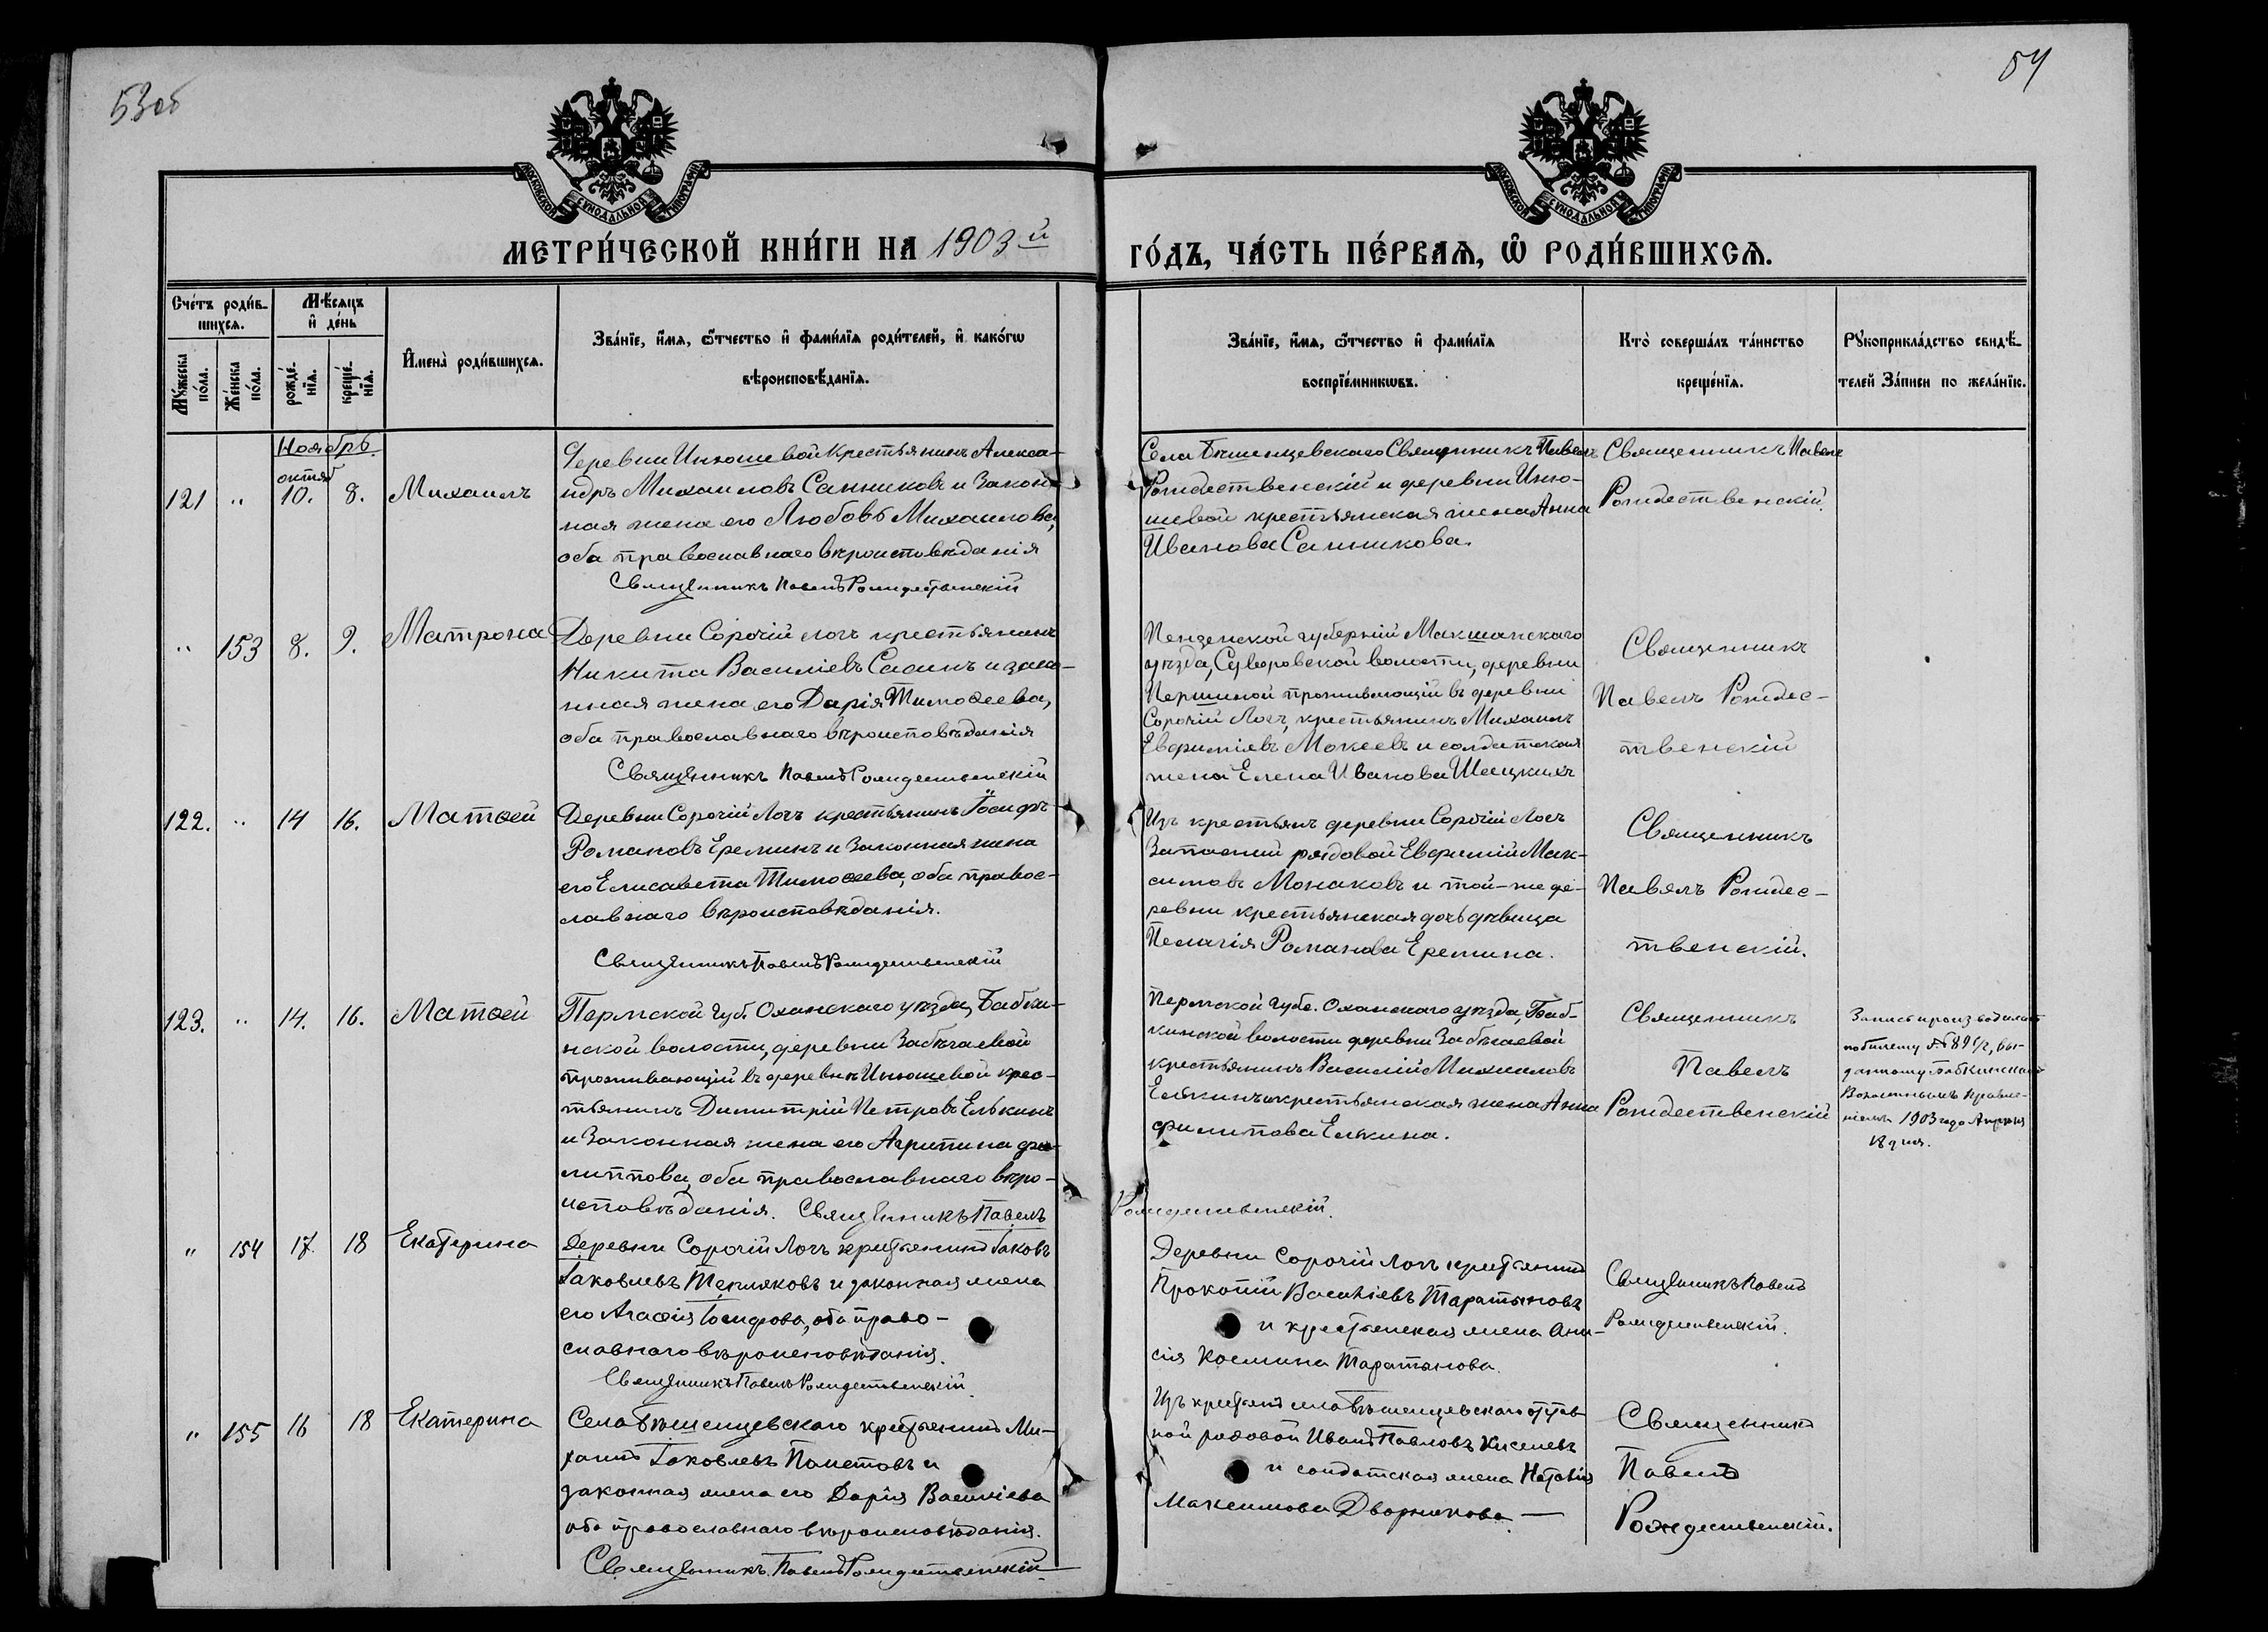 53об
54
МОСКОВСКОЙ СѴНОДАЛЬНОЙ ТИПОГРАФІИ
МОСКОВСКОЙ СѴНОДАЛЬНОЙ ТИПОГРАФІИ
МЕТРИ́ЧЕСКОЙ КНИ́ГИ НА 1903й
ГО́ДЪ, ЧА́СТЬ ПЕ́РВАѦ, Ѡ҆ РОДИ́ВШИХСѦ.
Сче́тъ роди́в-
шихсѧ.
Мꙋ́жеска по́ла.
Же́нска по́ла.
Мѣ́сѧцъ
и҆ де́нь
рожде́-
нїѧ.
креще́-
нїѧ.
И҆мена̀ роди́вшихсѧ.
Зва́нїе, и҆́мѧ, ѻ҆́тчество и҆ фами́лїѧ роди́телей, и҆ како́гѡ
вѣроисповѣ́данїѧ.
Зва́нїе, и҆́мѧ, ѻ҆́тчество и҆ фами́лїѧ
воспрїе́мникѡвъ.
Кто̀ соверша́лъ та́инство
креще́нїѧ.
Рꙋкоприкла́дство свидѣ́-
телей За́писи по жела́нїю.
Ноябрь.
октяб
121 " 10. 8. Михаилъ
Деревни Инюшевой крестьянинъ Алекса-
ндръ Михаиловъ Санниковъ и Закон-
ная жена его Любовь Михаилова,
оба православнаго вѣроисповѣданія
Священникъ Павелъ Рождественскій
Села Бѣшенцевскаго Священникъ Павелъ
Рождественскій и деревни Иню-
шевой крестьянская жена Анна
Иванова Санникова.
Священникъ Павелъ
Рождественскій.
" 153 8. 9. Матрона
Деревни Сорочій логъ крестьянинъ
Никита Василіевъ Сасинъ и зако-
нная жена его Дарія Тимоѳеева,
оба православнаго вѣроисповѣданія
Священникъ Павелъ Рождественскій
Пензенской губерніи Мокшанскаго
уѣзда, Суворовской волости, деревни
Першиной проживающій въ деревни
Сорочій Логъ, крестьянинъ Михаилъ
Евфиміевъ Мокеевъ и солдатская
жена Елена Иванова
Священникъ
Павелъ Рождес-
твенскій
122. " 14 16. Матѳей
Деревни Сорочій Логъ крестьянинъ Іосифъ
Романовъ Ереминъ и Законная жена
его Елисавета Тимоѳеева, оба правос-
лавнаго вѣроисповѣданія.
Священникъ Павелъ Рождественскій
Изъ крестьянъ деревни Сорочій Логъ
Запасный рядовой Евфимій Мак-
симовъ Монаковъ и той-же де-
ревни крестьянская дочь дѣвица
Пелагія Романова Еремина.
Священникъ
Павелъ Рождес-
твенскій.
123. " 14. 16. Матѳей
Пермской Губ. Оханскаго уѣзда, Бабки-
нской волости, деревни Забѣгаевой
проживающій въ деревнѣ Инюшевой крес-
тьянинъ Димитрій Петровъ Елькинъ
и Законная жена его Агрипина Фи-
липпова, оба православнаго вѣро-
исповѣданія. Священникъ Павелъ
Рождественскій.
Пермской Губе. Оханскаго уѣзда, Баб-
кинской волости деревни Забѣгаевой
крестьянинъ Василій Михаиловъ
Елькинъ и крестьянская жена Анна
Филипова Елькина.
Священникъ
Павелъ
Рождественскій
Запись производилась
по билету № 89
данному Бабкинскимъ
Волостнымъ Правле-
ніемъ 1903 года Апрѣля
18 дня.
" 154 17. 18 Екатерина
Деревни Сорочій Логъ крестьянинъ Іаковъ
Іаковлевъ Терляковъ и законная жена
его Агаѳія Іосифова, оба право-
славнаго вѣроисповѣданія.
Священникъ Павелъ Рождественскій.
Деревни Сорочій Логъ крестьянинъ
Прокопій Василіевъ Таратыновъ
и крестьянская жена Ани-
сія Космина Таратынова.
Священникъ Павелъ
Рождественскій.
" 155 16 18 Екатерина
Села Бѣшенцевскаго крестьянинъ Ми-
хаилъ Іаковлевъ Полетовъ и
законная жена его Дарія Василіева
оба православнаго вѣроисповѣданія.
Священникъ Павелъ Рождественскій
Изъ крестьянъ села Бѣшенцевскаго отстав-
ной рядовой Иванъ Павловъ Киселевъ
и солдатская жена Наталія
Максимова Дворникова.
Священникъ
Павелъ
Рождественскій.